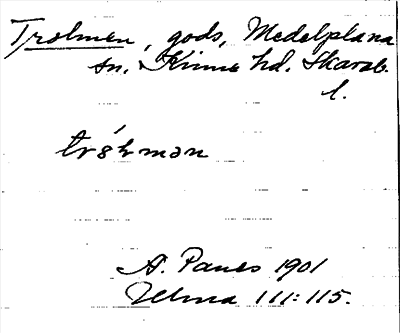 Trolmen, gods, Medelplana
sn. Kinne hd. Skarab.
l.
trǒ́lmən
A. Paues 1901
Ulma 111:115.